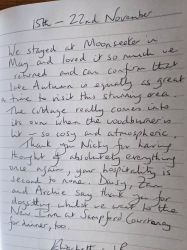 15th - 22nd November
We stayed at Moonseeker in
May and loved it so much we
returned and can confirm that
late Autumn is equally as great
a time to visit this stunning area.
The cottage really comes into
its own when the woodburner is
lit - so cosy and atmospheric.
Thank you Nicky for having
thought of absolutely everything
once again, your hospitality is
second to none. Daisy,
and Archie say thank you for
dogsitting whilst we went to the
New Inn at Sampford Courtenay
for dinner, too.